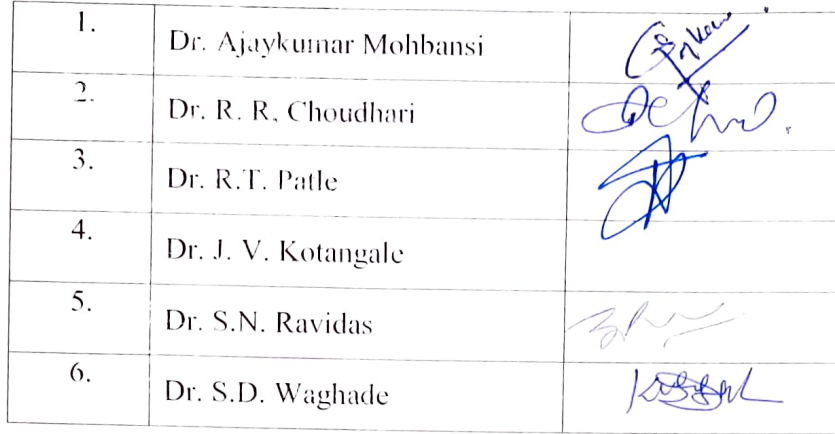 1. Dr. Ajaykumar Mohbansi
2. Dr. R. R. Choudhari
3. Dr. R.T. Patle
4. Dr. J. V. Kotangale
5. Dr. S.N. Ravidas
6. Dr. S.D. Waghade